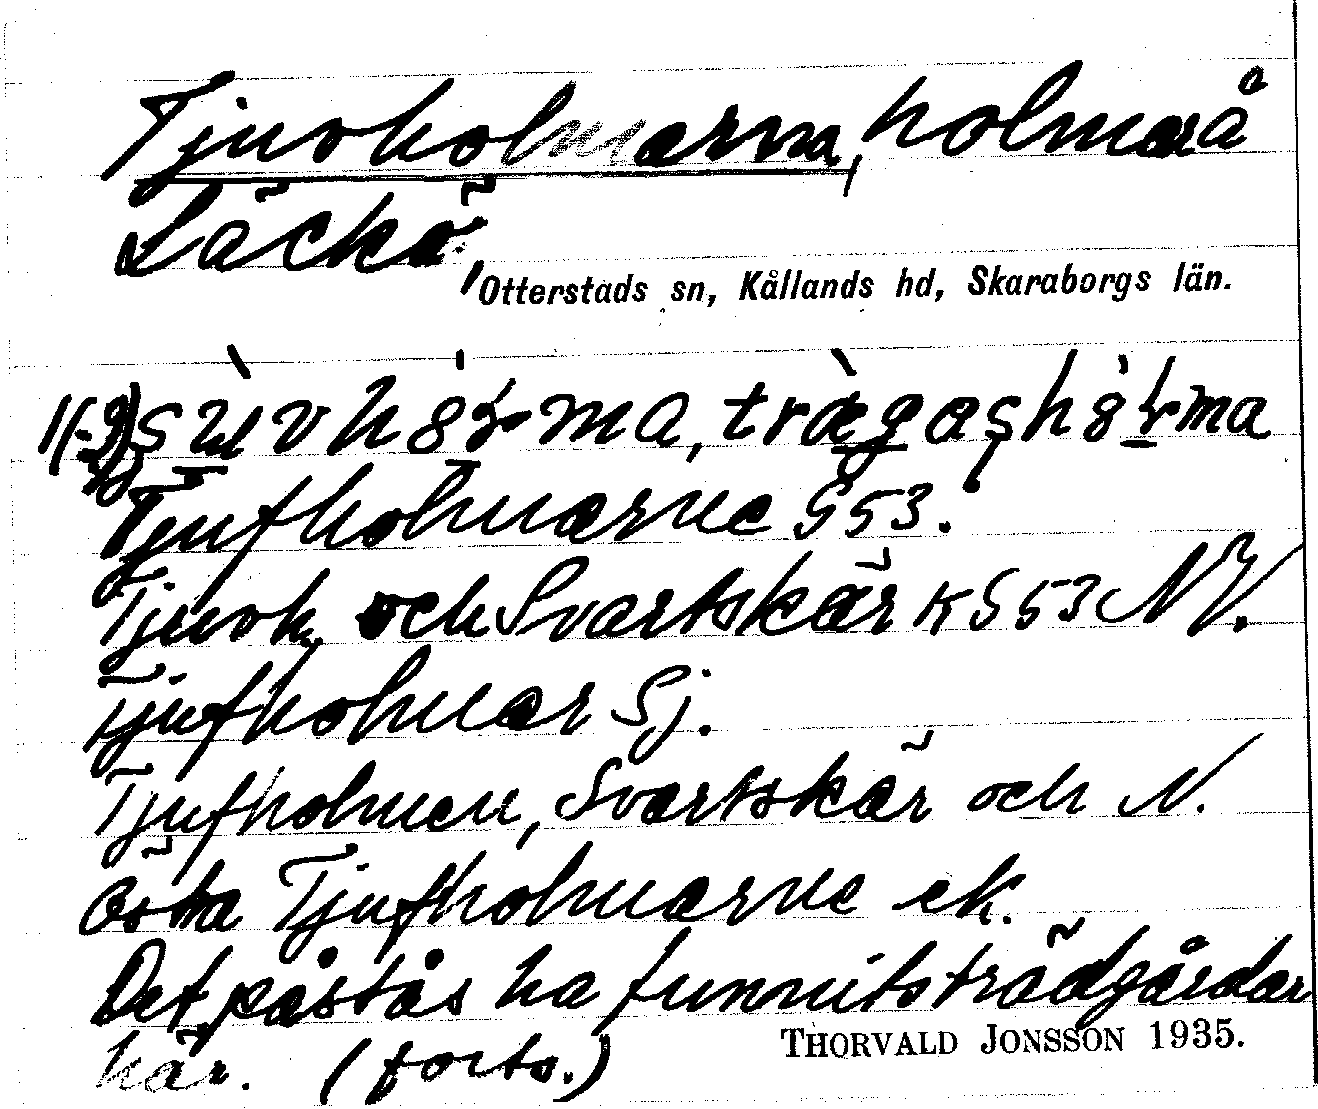 Tjuvholmarna, holmar å
Läckö,
Otterstads sn, Kållands hd, Skaraborgs län.
Tjufholmarne G53.
Tjuvh. och Svartskär KG53 NV.
Tjufholmar Sj.
Tjufholmen, Svartskär och N.
Östra Tjufholmarne ek.
Det påstås ha funnits trädgårdar
här. (forts.)
THORVALD JONSSON 1935.